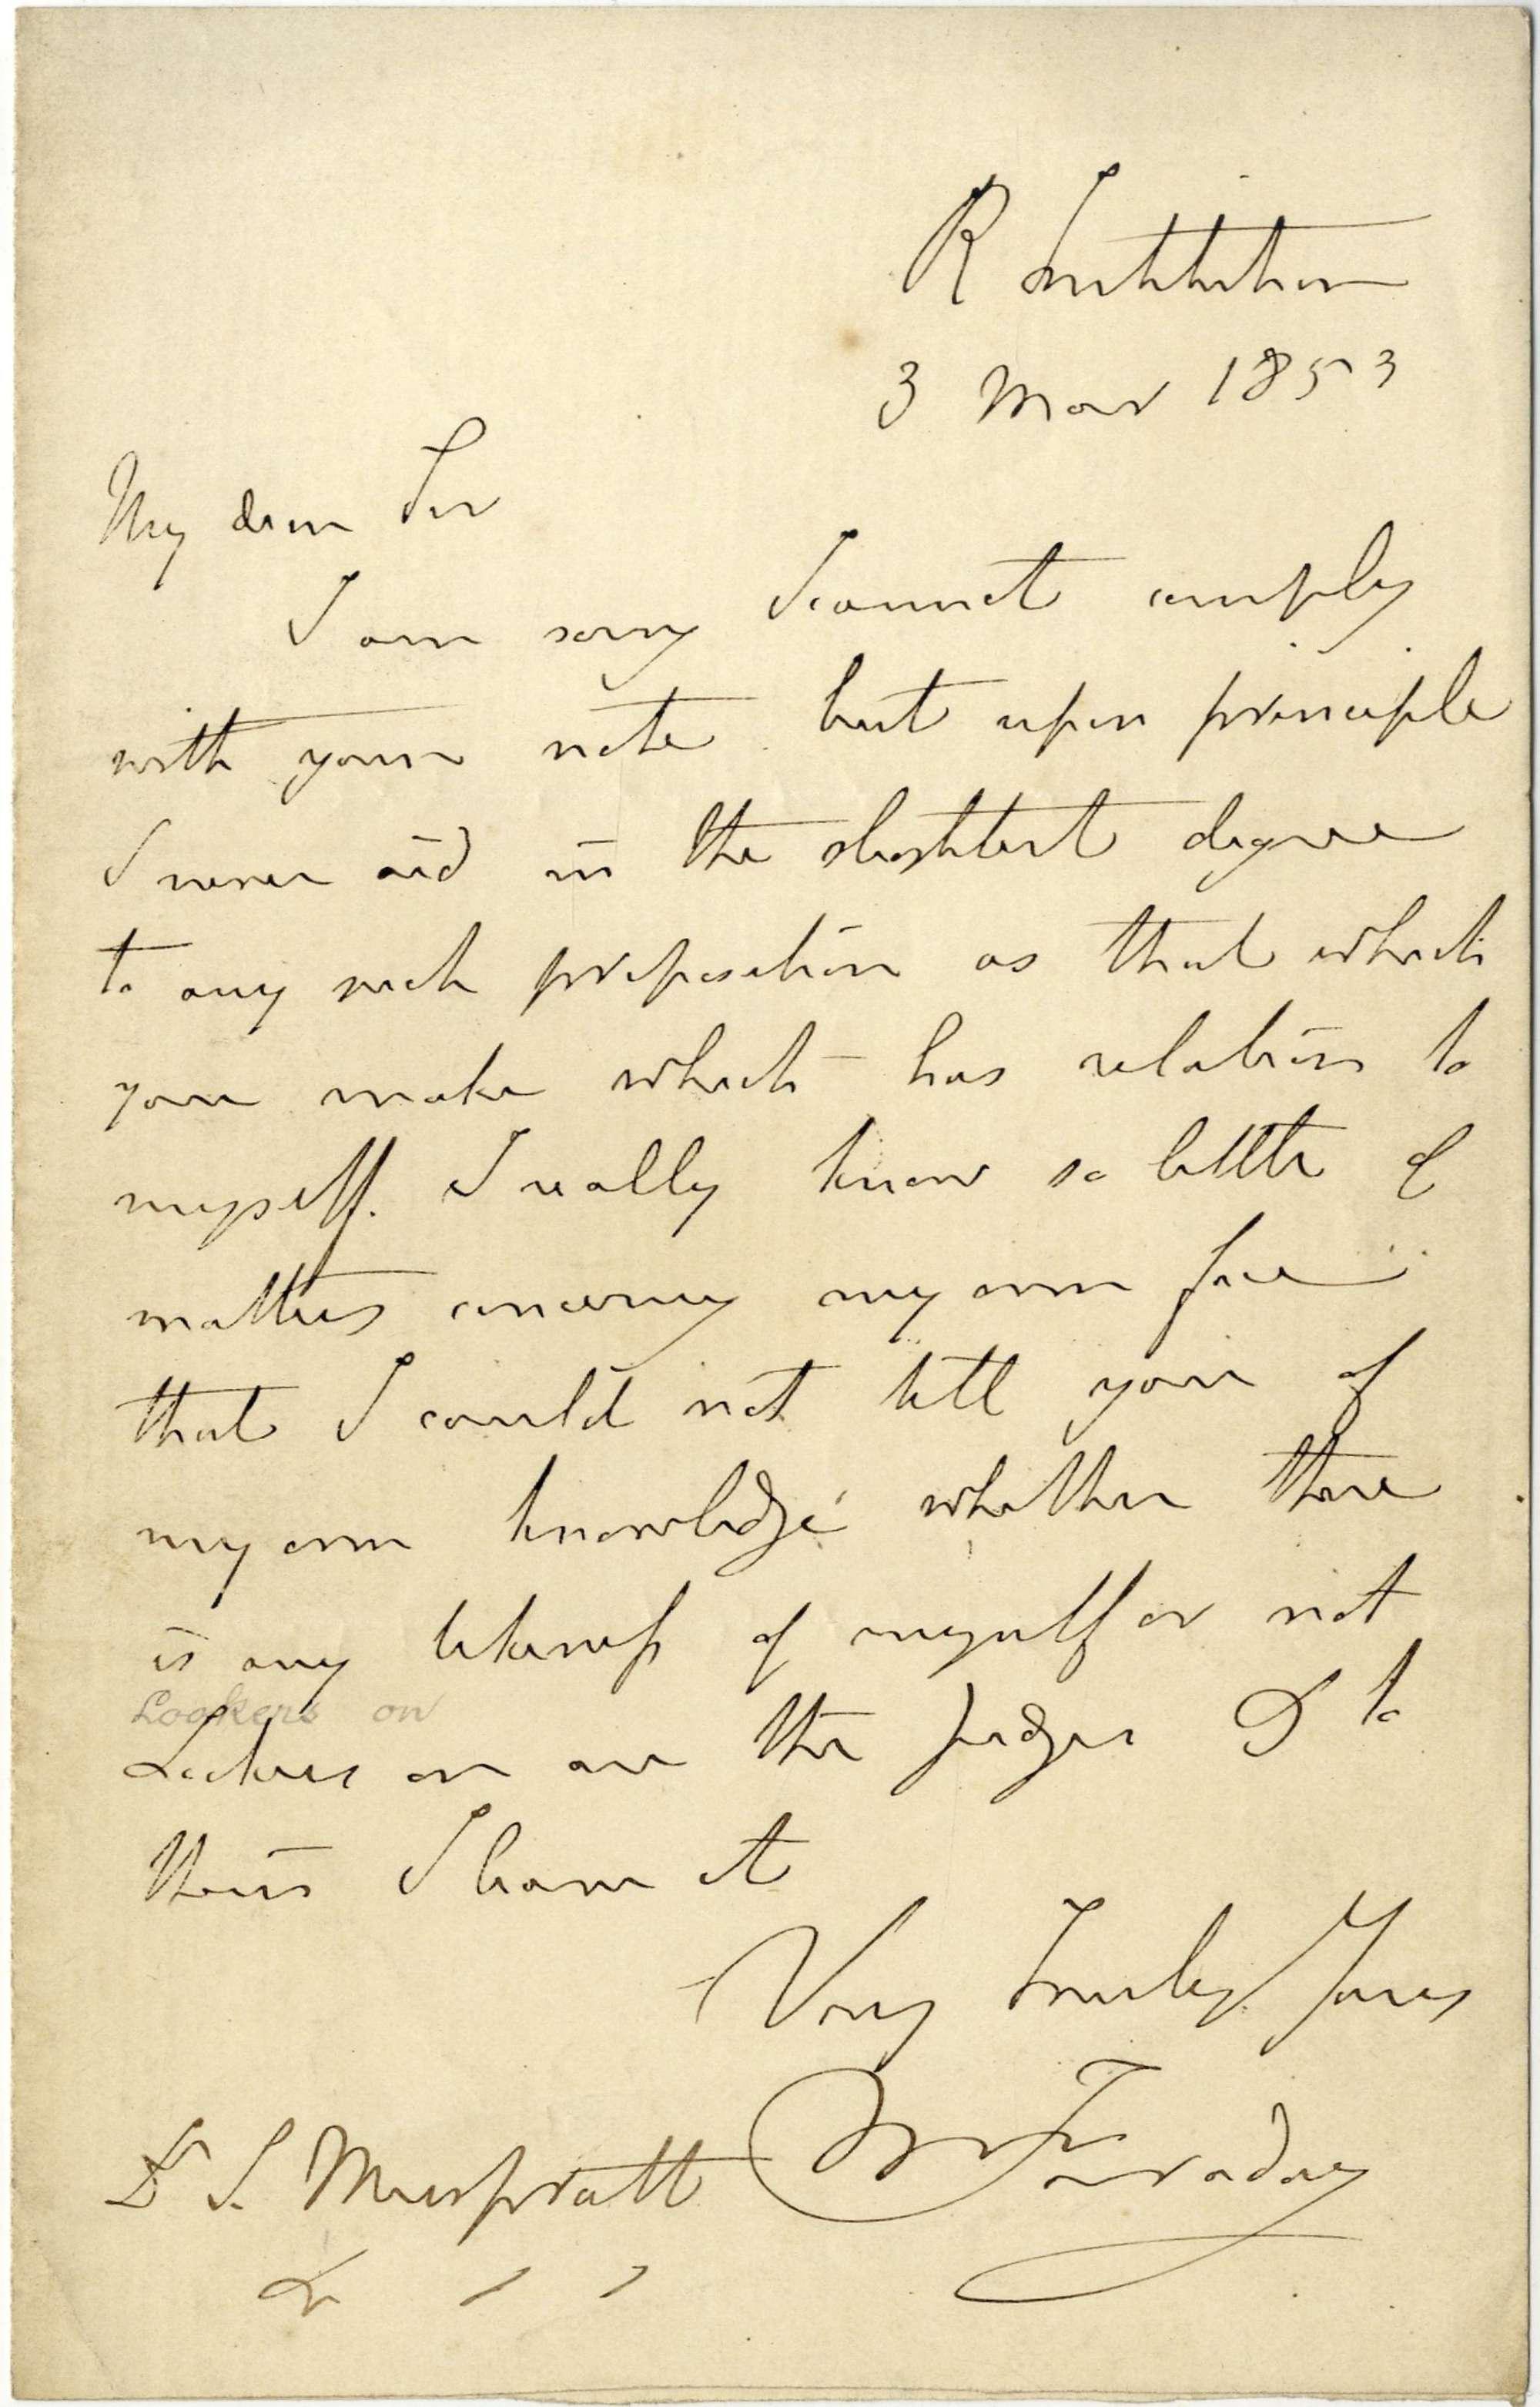 R Institution
3 Mar 1853
My dear Sir
I am sorry I cannot comply
with your note but upon principle
I never aid in the slightest degree
to any such proposition as that which
you make which has relation to
myself. I really know so little of
matters concerning my own face
that I could not tell you of
my own knowledge whether there
is any likeness of myself or not
Lookers on
Lookers on are the judges & to
them I leave it
Very Truly Yours
M Faraday
Dr S. Muspratt
& " "